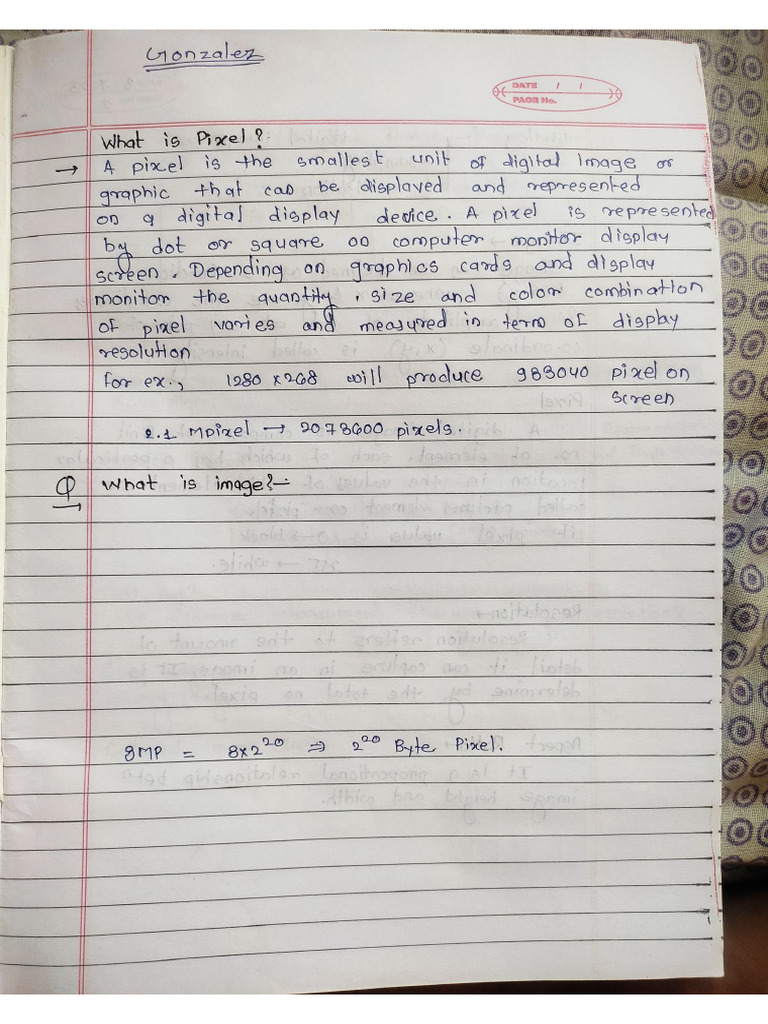 Gonzalez
DATE / /
PAGE No.
What is Pixel?
→ A pixel is the smallest unit of digital image or
graphic that can be displaved and represented
on a digital display device. A pixel is represented
by dot or square on computer monitor display
screen. Depending on graphics cards and display
monitor the quantity, size and color combination
of pixel varies and measured in term of display
resolution
for ex., 1280 x 268 will produce 983040 pixel on
screen
2.1 Mpixel → 2073600 pixels.
Q What is image?:-
8MP = 8x2^20 ⇒ 2^20 Byte Pixel.